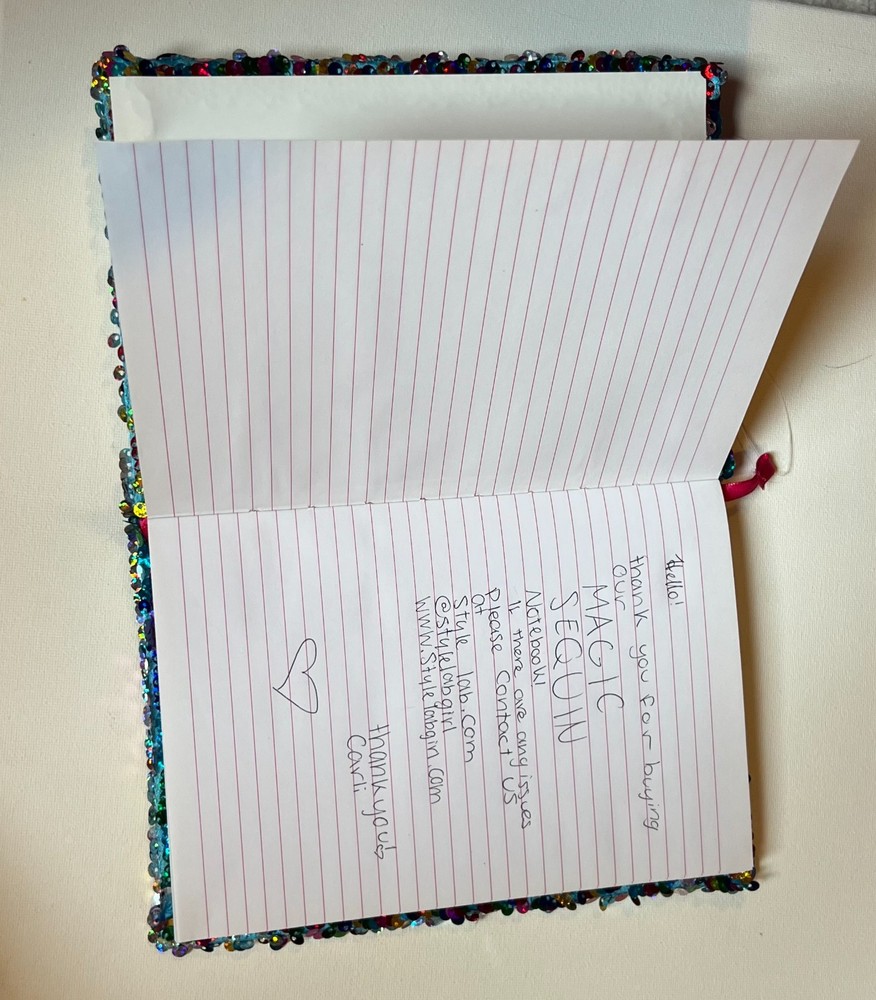 Hello!
thank you for buying
our
MAGIC
SEQUIN
Notebook!
If there are any issues
Please contact us
at
Style lab.com
@stylelabgirl
www.Stylelabgirl.com
thankyou!
Carli